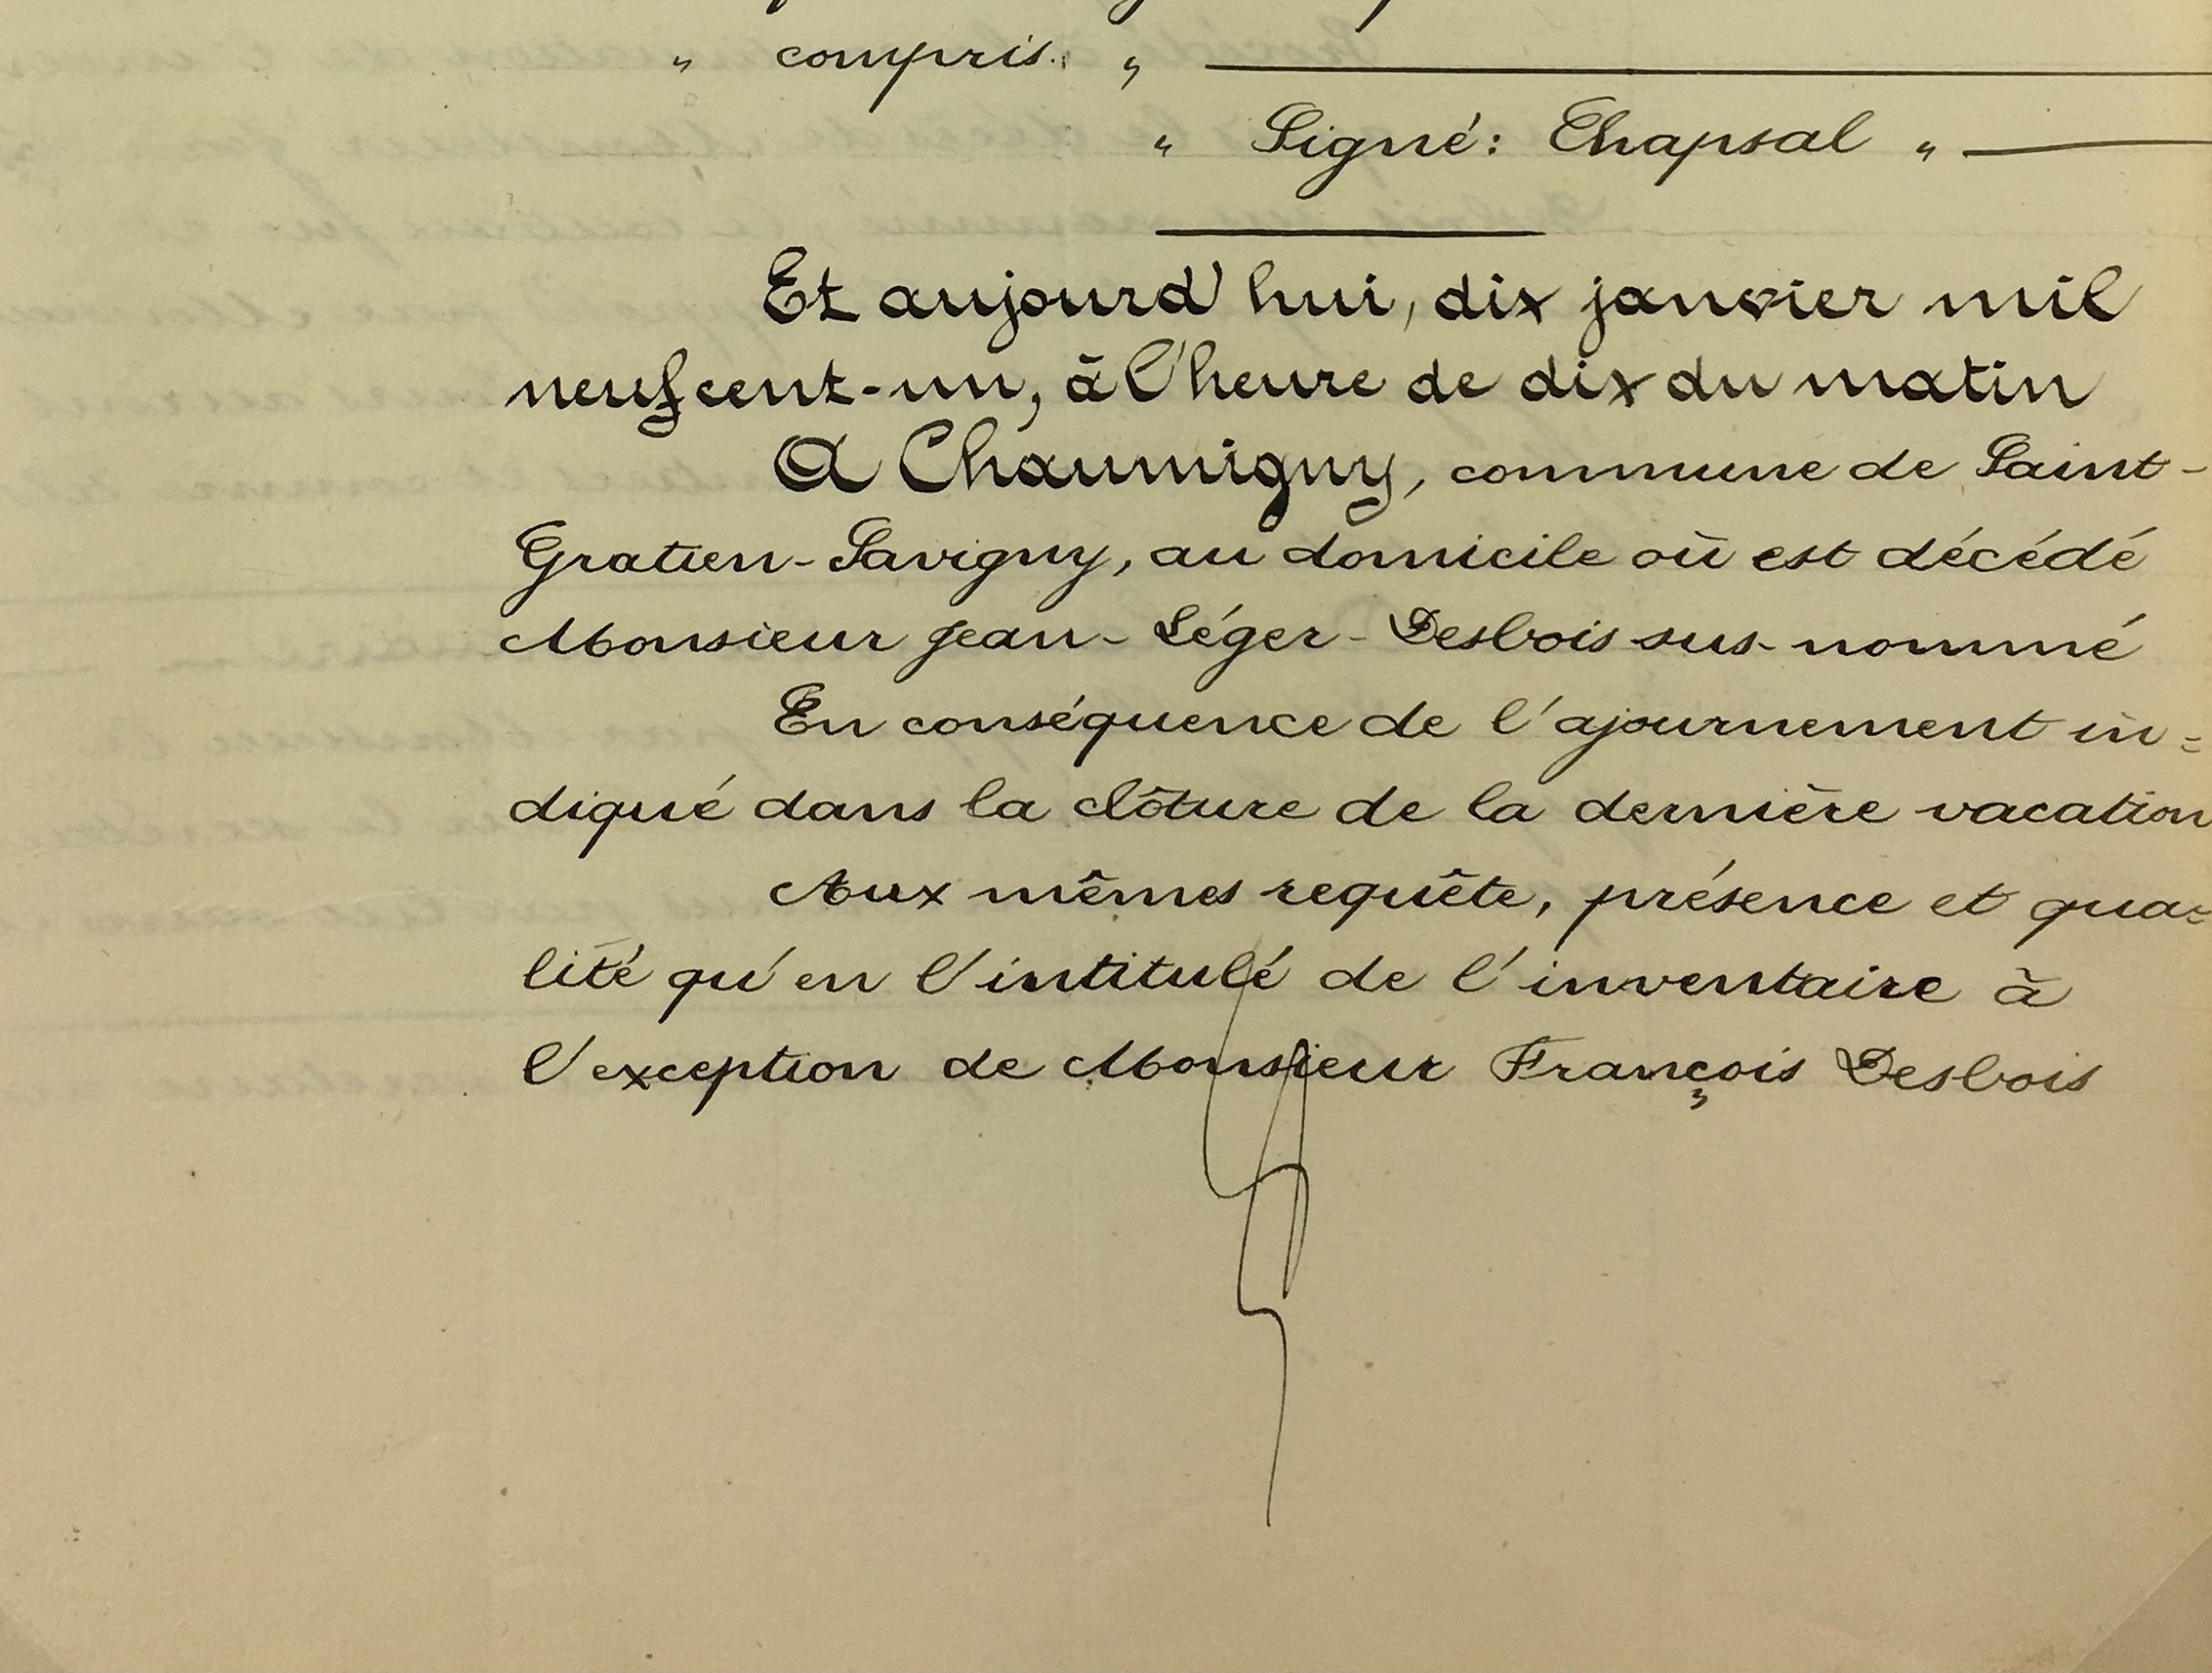 " compris. "
" Signé: Chapsal "
Et aujourd'hui, dix janvier mil
neuf cent-un, à l'heure de dix du matin
A Chaumigny, commune de Saint-
Gratien-Savigny, au domicile où est décédé
Monsieur Jean-Léger-Desbois sus-nommé
En conséquence de l'ajournement in=
diqué dans la clôture de la dernière vacation
Aux mêmes requête, présence et qua=
lité qu'en l'intitulé de l'inventaire à
l'exception de Monsieur François Desbois